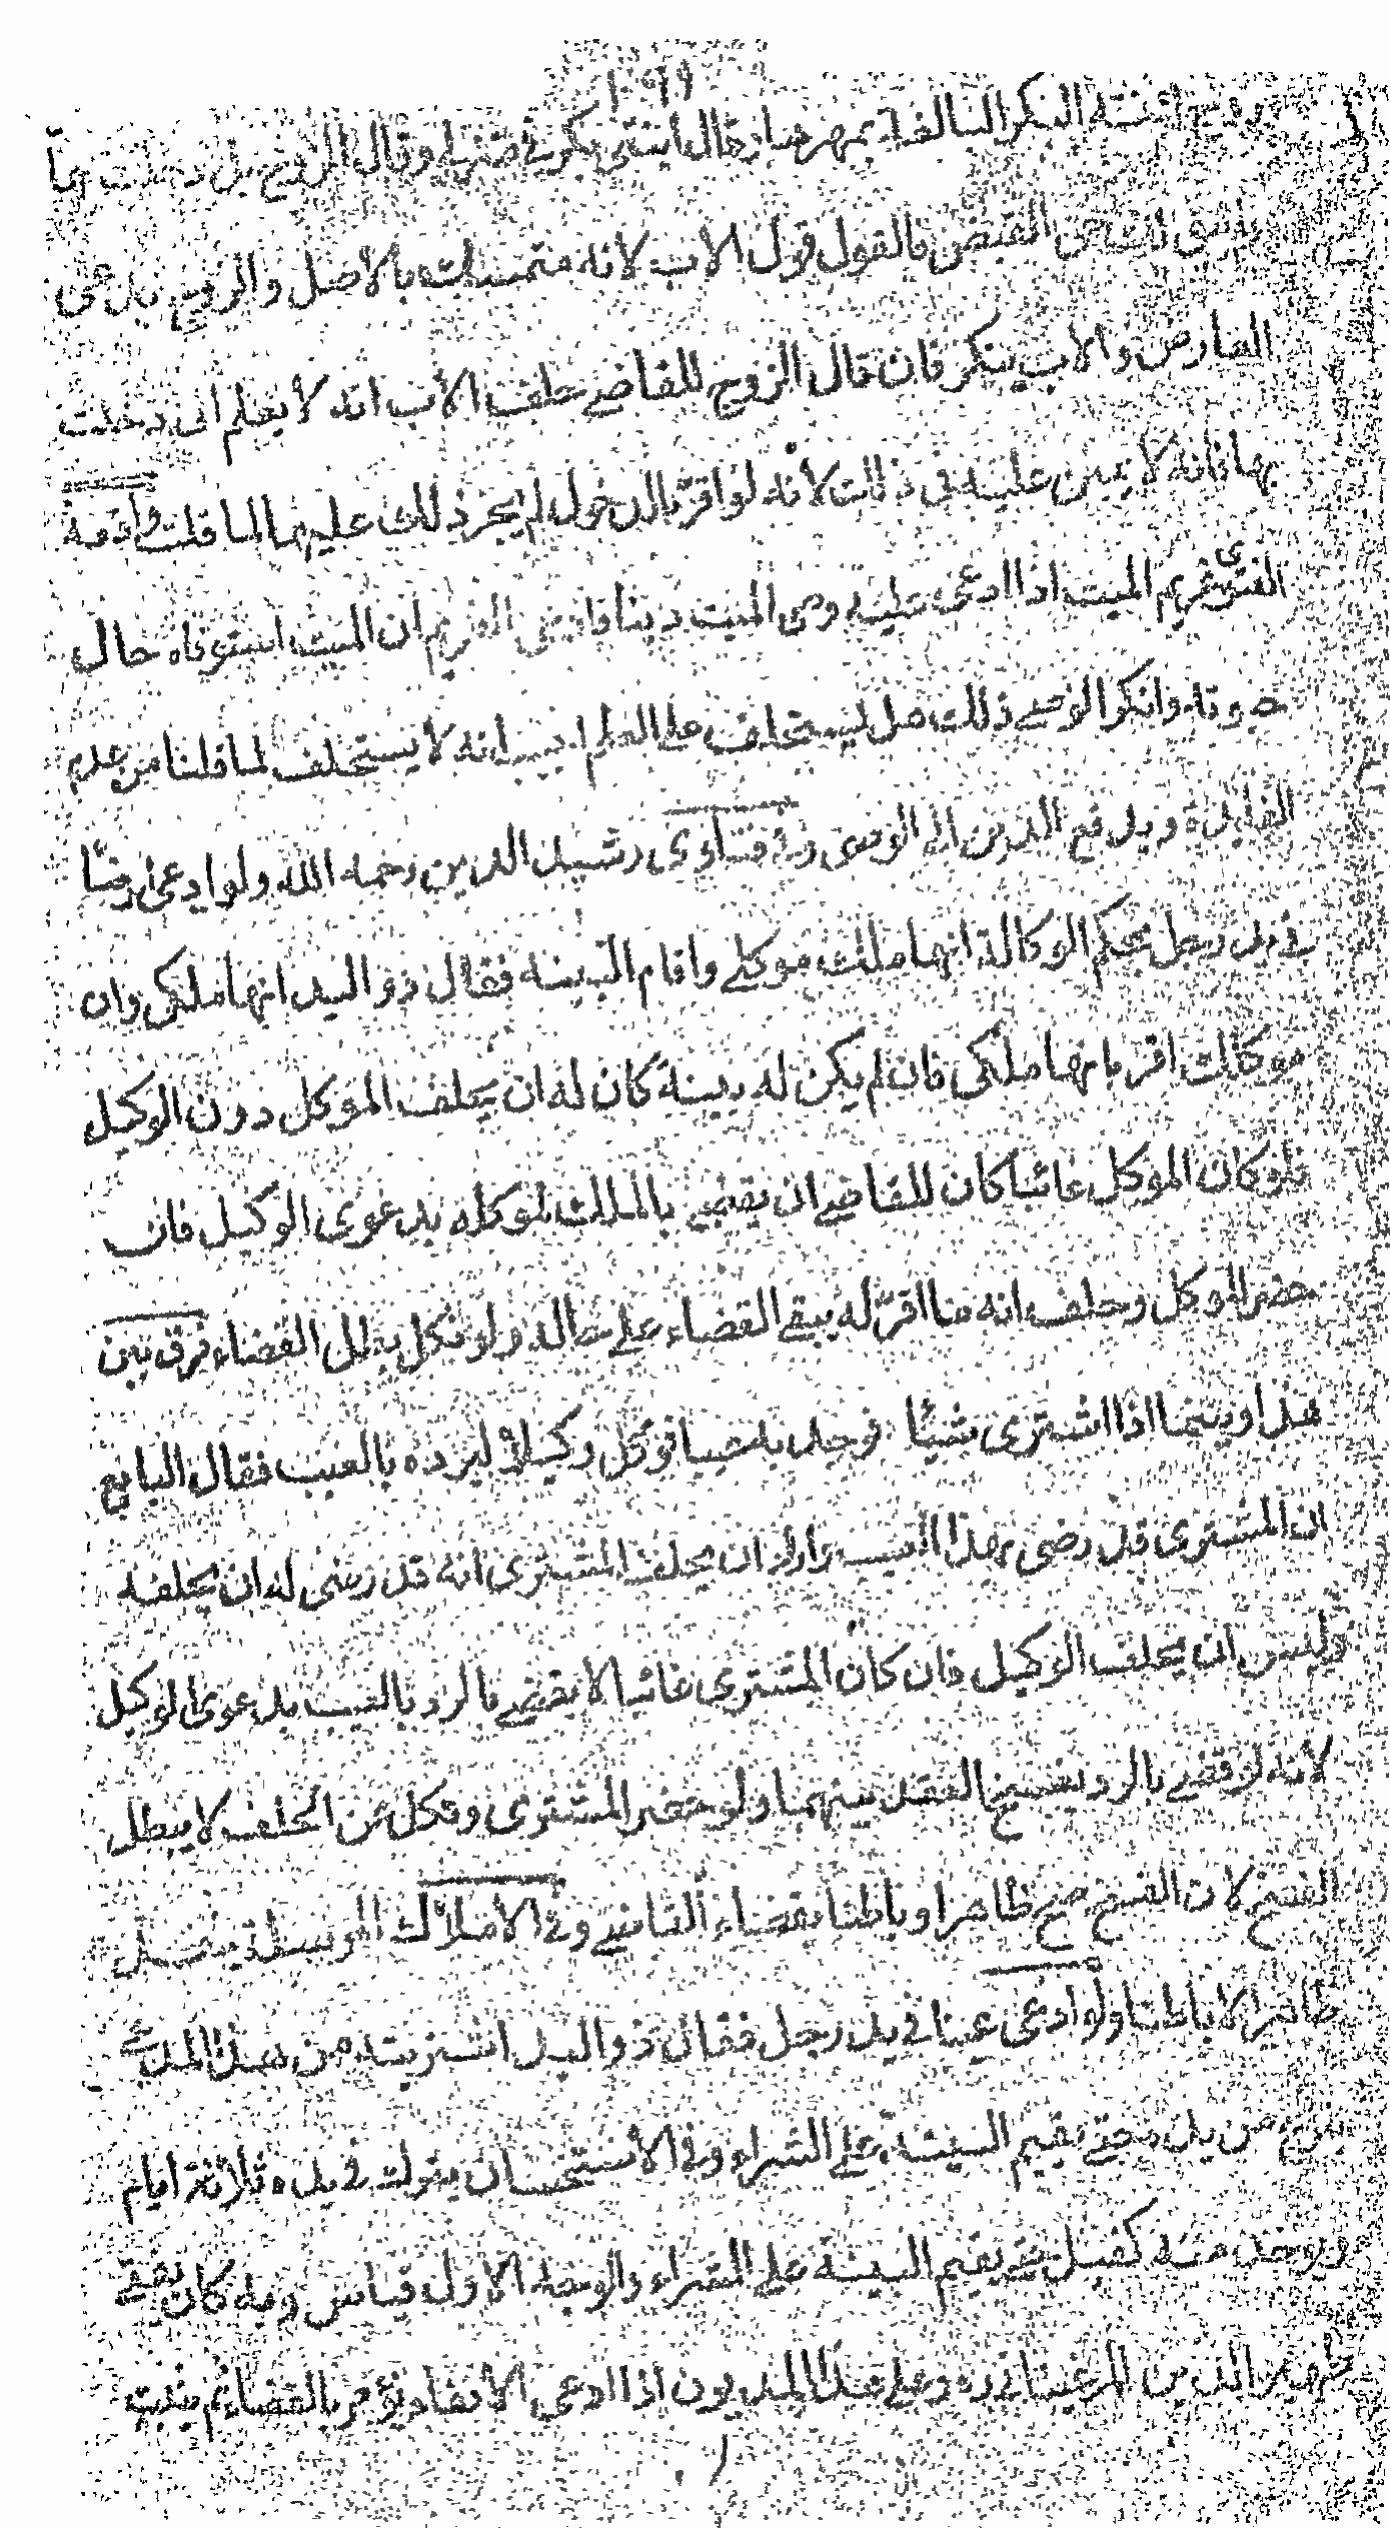 زوج ابنته البكر البالغة بمهر صار فقال ابنتي بكر في منزلي وقال الزوج بل دخلت بها
وليس لك حق القبض فالقول قول الاب لانه متمسك بالاصل والزوج يدعى
العارض والاب ينكر فان قال الزوج للقاضي حلف الاب انه لا يعلم انى دخلت
بها فانه لا يمين عليه في ذلك لانه لو اقر بالدخول لم يجز ذلك عليها لما قلت وادمه
الفتوى غريم الميت اذا ادعى عليه وصى الميت دينا فادعى الغريم ان الميت استوفاه حال
حيوته وانكر الوصي ذلك هل يستحلف على العلم اجيب انه لا يستحلف لما قلنا من عدم
الفايدة ويدفع الدين الى الوصى وفي فتاوى رشيد الدين رحمه الله ولو ادعى ارضا
في يد رجل بحكم الوكالة انها ملك موكلي واقام البينة فقال ذو اليد انها ملكى وان
موكلك اقر بانها ملكى فان لم يكن له بينة كان له ان يحلف الموكل دون الوكيل
فلو كان الموكل غائبا كان للقاضي ان يقضي بالملك لموكله بدعوى الوكيل فان
حضر الموكل وحلف انه ما اقر له يبقى القضاء على حاله ولو نكل يبطل القضاء فرق بين
هذا وبينما اذا اشترى شيئا فوجد به عيبا فوكل وكيلا ليرده بالعيب فقال البايع
ان المشترى قد رضى بهذا العيب واراد ان يحلف المشترى انه قد رضى له ان يحلفه
وليس ان يحلف الوكيل وان كان المشترى غائبا لا يقضي بالرد بالعيب بدعوى الوكيل
لانه لو قضى بالرد يفسخ العقد بينهما ولو حضر المشترى ونكل عن الحلف لا يبطل
الفسخ لان الفسخ صح ظاهرا وباطنا بقضاء القاضي وفي الاملاك المرسلة ينفذ
ظاهرا لا باطنا ولو ادعى عينا في يد رجل فقال ذو اليد اشتريته من هذا المدعي
ينزع من يده حتى يقيم البينة على الشراء وفي الاستحسان يترك في يده ثلاثة ايام
ويوخذ منه كفيل حتى يقيم البينة على الشراء والوجه الاول قياس وبه كان يفتي
ظهير الدين المرغينانى ره وعلى هذا المديون اذا ادعى الايفاء يؤمر بالقضاء ثم يثبت